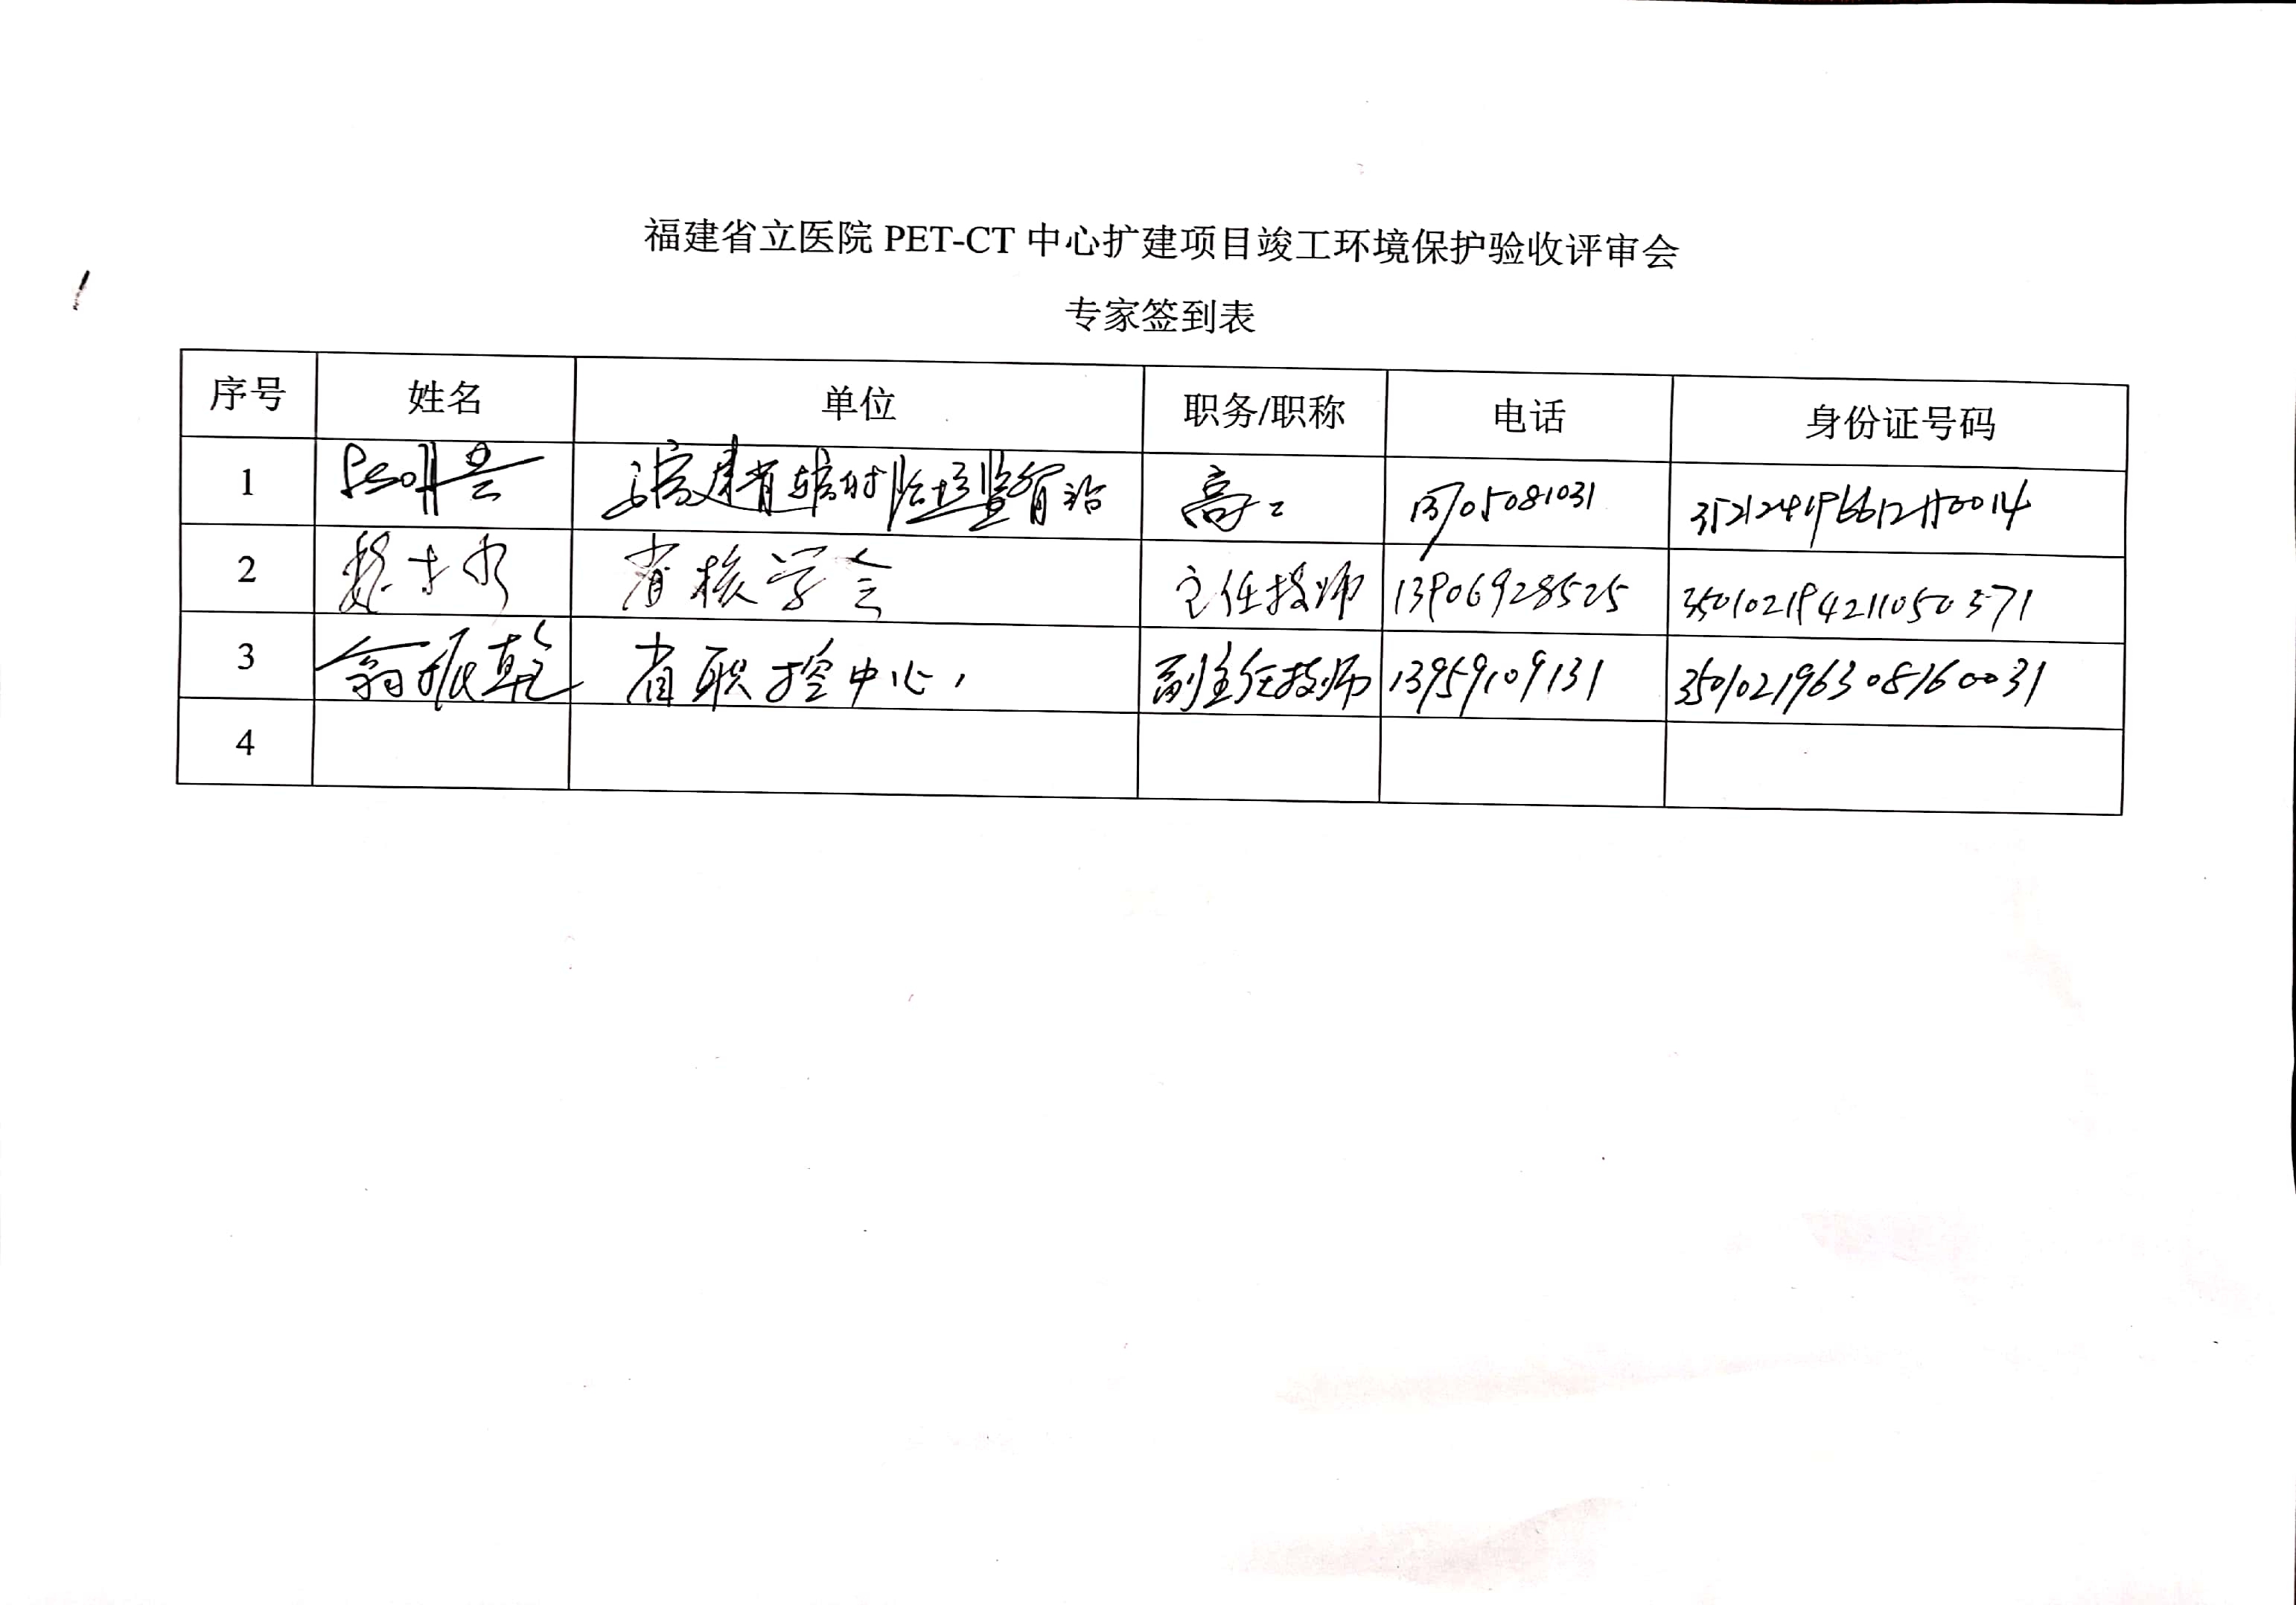 福建省立医院 PET-CT 中心扩建项目竣工环境保护验收评审会
专家签到表
序号 姓名 单位 职务/职称 电话 身份证号码
1 福建省辐射环境监督站 高工 13705081031
2 省核学会 主任技师 13906928525 350102194211050571
3 翁振乾 省职控中心 副主任技师 13959109131 350102196308160031
4